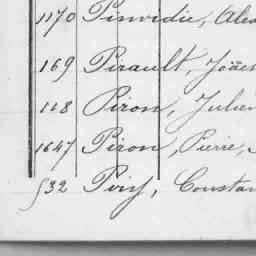 1170 Pinvidic, Alex
169 Pirault, Joach
168 Piron, Julien
1647 Piron, Pierre,
532 Constan